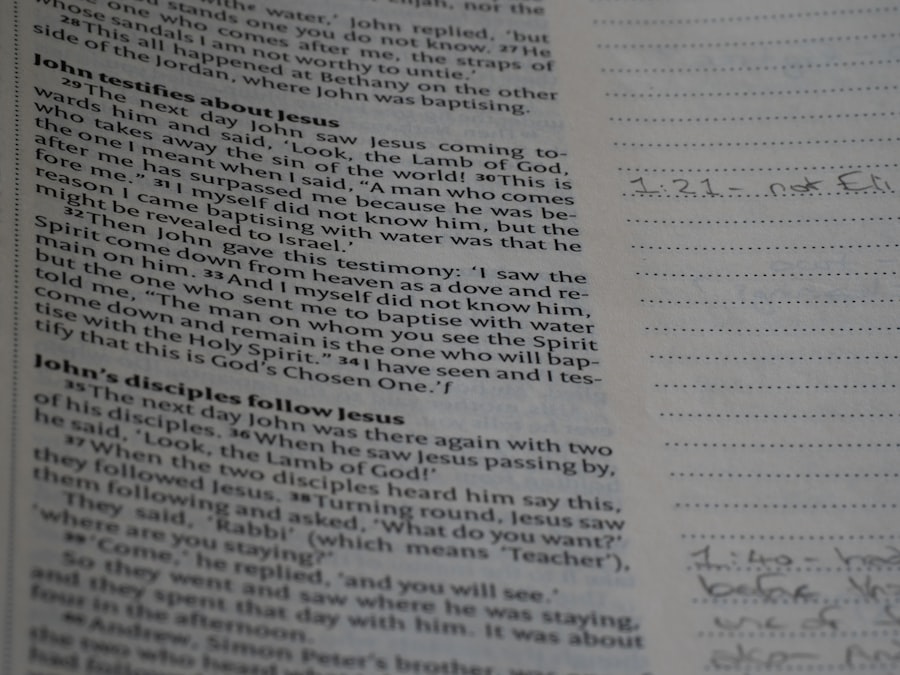 with water,' John replied, 'but
stands one you do not know. 27 He
one who comes after me, the straps of
whose sandals I am not worthy to untie.'
28 This all happened at Bethany on the other
side of the Jordan, where John was baptising.
John testifies about Jesus
29 The next day John saw Jesus coming to-
wards him and said, 'Look, the Lamb of God,
who takes away the sin of the world! 30 This is
the one I meant when I said, "A man who comes
after me has surpassed me because he was be-
fore me." 31 I myself did not know him, but the
reason I came baptising with water was that he
might be revealed to Israel.'
32 Then John gave this testimony: 'I saw the
Spirit come down from heaven as a dove and re-
main on him. 33 And I myself did not know him,
but the one who sent me to baptise with water
told me, "The man on whom you see the Spirit
come down and remain is the one who will bap-
tise with the Holy Spirit." 34 I have seen and I tes-
tify that this is God's Chosen One.' f
John's disciples follow Jesus
35 The next day John was there again with two
of his disciples. 36 When he saw Jesus passing by,
he said, 'Look, the Lamb of God!'
37 When the two disciples heard him say this,
they followed Jesus. 38 Turning round, Jesus saw
them following and asked, 'What do you want?'
They said, 'Rabbi' (which means 'Teacher'),
'where are you staying?'
39 'Come,' he replied, 'and you will see.'
So they went and saw where he was staying,
and they spent that day with him. It was about
four in the afternoon.
40 Andrew, Simon Peter's brother, was
the two who heard
had
1:21 - not Eli
1:40 - had
before
one of